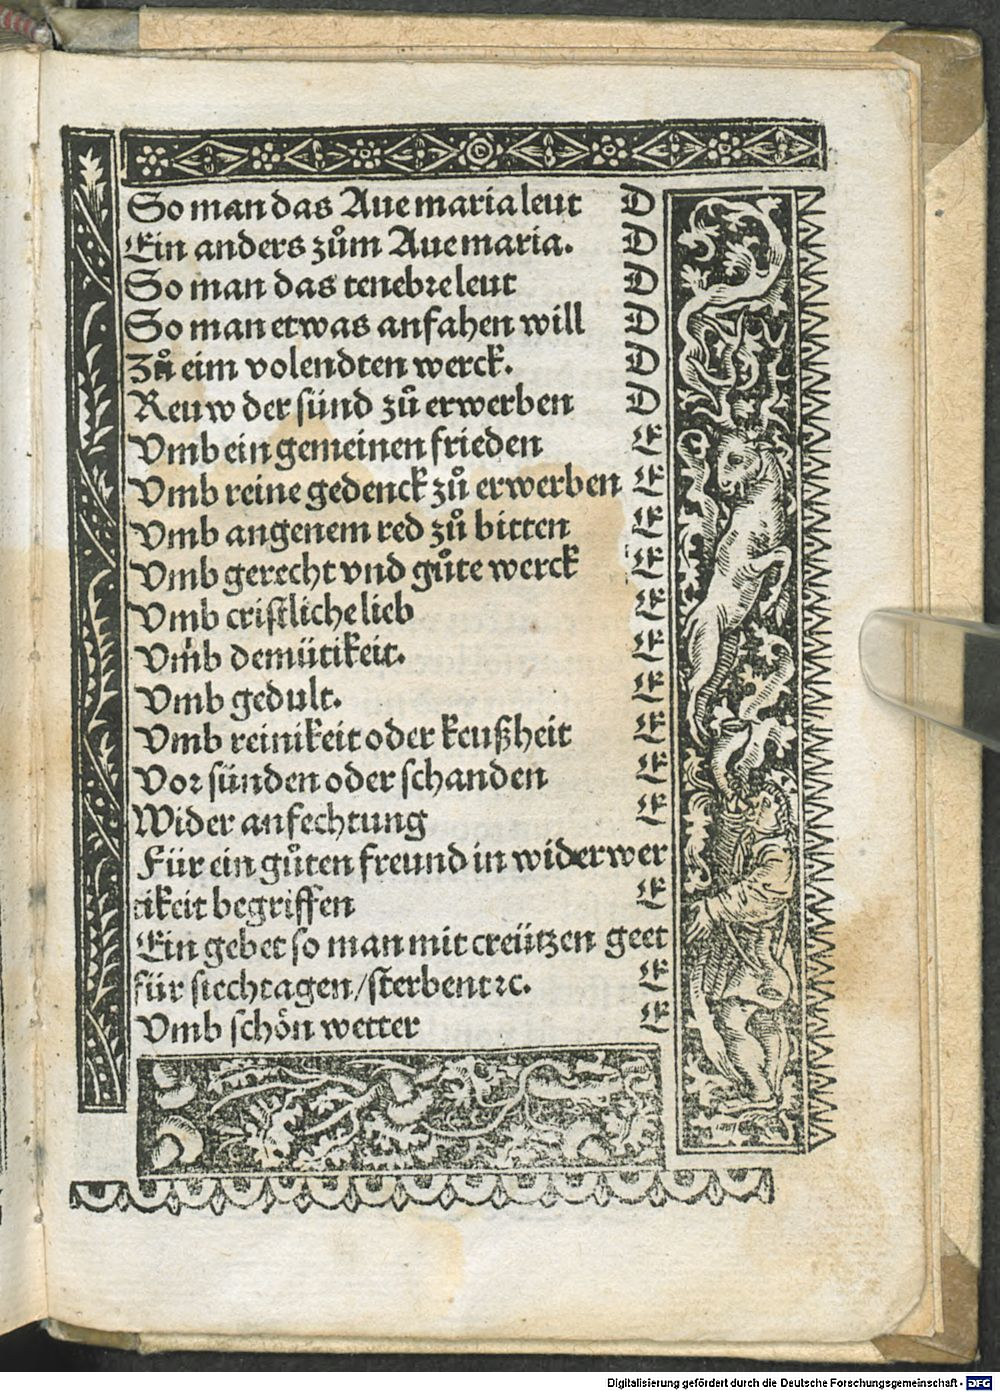 So man das Aue maria leut D
Ein anders zuͦm Aue maria. D
So man das tenebre leut D
So man etwas anfahen will D
Zuͦ eim volendten werck. D
Reuw der sünd zuͦ erwerben D
Vmb ein gemeinen frieden E
Vmb reine gedenck zuͦ erwerben E
Vmb angenem red zuͦ bitten E
Vmb gerecht vnd guͦte werck E
Vmb cristliche lieb E
Vmb demütikeit. E
Vmb gedult. E
Vmb reinikeit oder keußheit E
Vor sünden oder schanden E
Wider anfechtung E
Für ein guͦten freund in widerwer
tikeit begriffen E
Ein gebet so man mit creützen geet
für siechtagen/sterbent ꝛc. E
Vmb schön wetter E
Digitalisierung gefördert durch die Deutsche Forschungsgemeinschaft - DFG